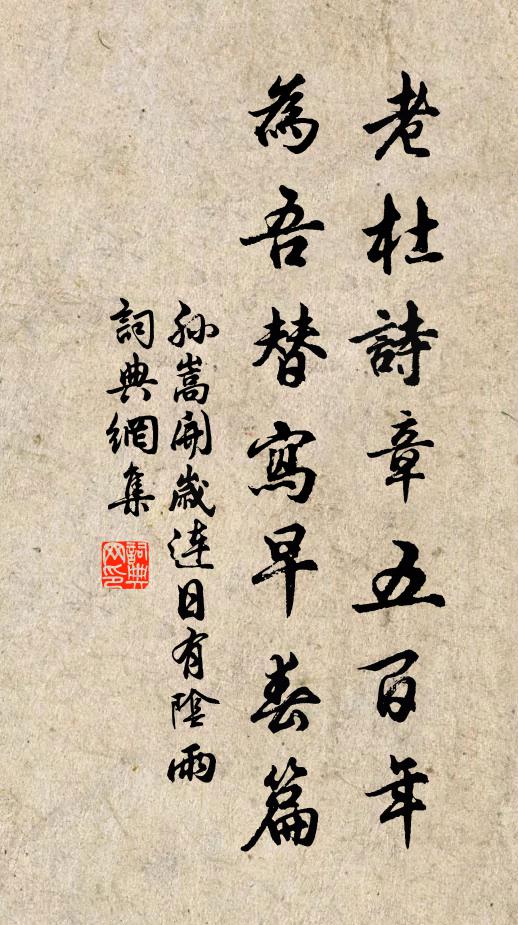 老杜詩章五百年
為吾替寫早春篇
孫嵩開歲連日有陰雨
詞典網集
詞典
网印